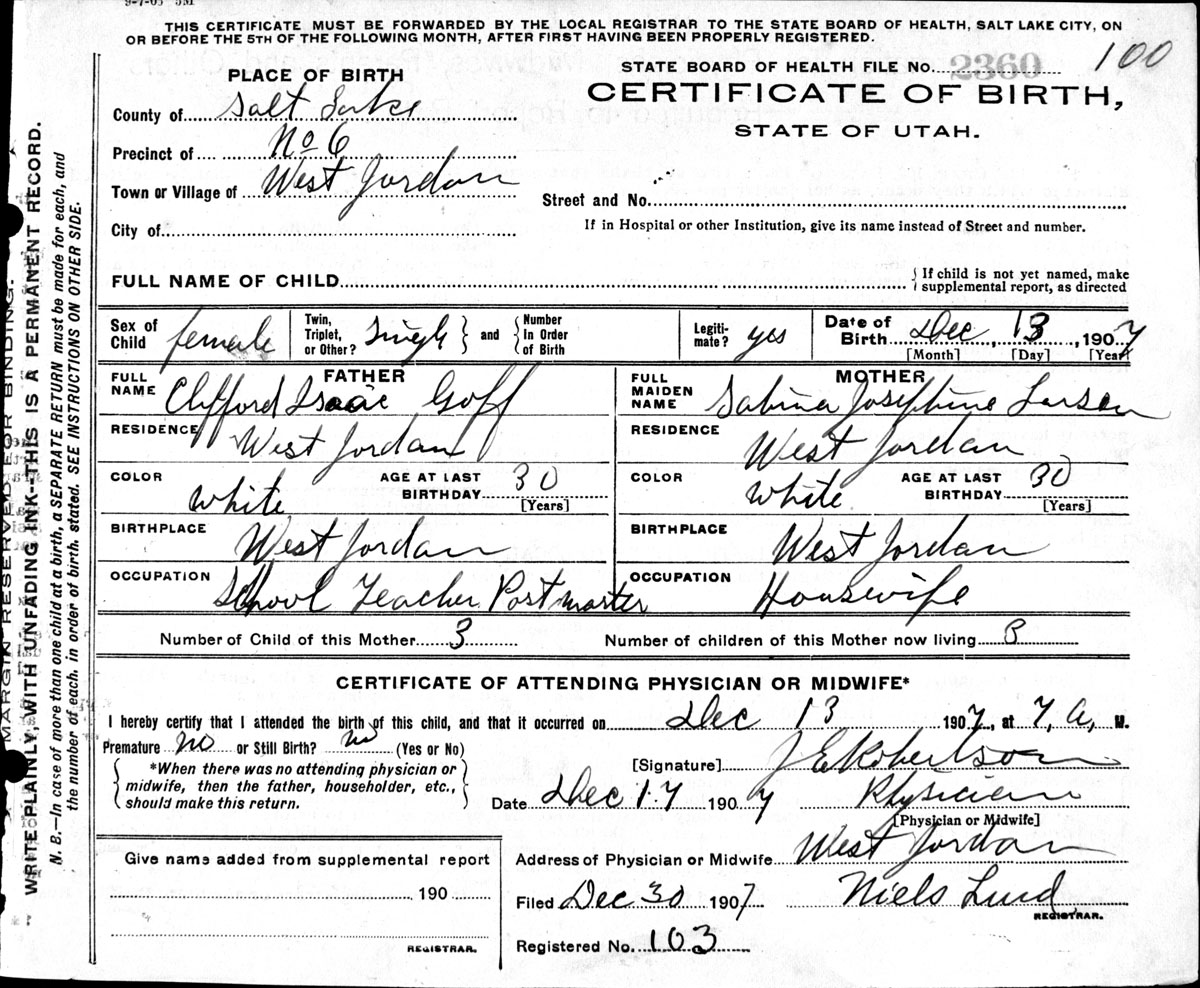 9-7-05 5M
THIS CERTIFICATE MUST BE FORWARDED BY THE LOCAL REGISTRAR TO THE STATE BOARD OF HEALTH, SALT LAKE CITY, ON
OR BEFORE THE 5TH OF THE FOLLOWING MONTH, AFTER FIRST HAVING BEEN PROPERLY REGISTERED.
100
STATE BOARD OF HEALTH FILE No. 2360
CERTIFICATE OF BIRTH,
STATE OF UTAH.
PLACE OF BIRTH
County of Salt Lake
Precinct of No 6
Town or Village of West Jordan
City of
Street and No.
If in Hospital or other Institution, give its name instead of Street and number.
FULL NAME OF CHILD
If child is not yet named, make
supplemental report, as directed
Sex of Child female
Twin, Triplet, or Other? Single and Number In Order of Birth
Legiti-mate? yes
Date of Birth Dec 13, 1907
[Month] [Day] [Year]
FATHER
FULL NAME Clifford Isaac Goff
RESIDENCE West Jordan
COLOR White AGE AT LAST BIRTHDAY 30
[Years]
BIRTHPLACE West Jordan
OCCUPATION School Teacher Postmaster
MOTHER
FULL MAIDEN NAME Sabina Josephine Larsen
RESIDENCE West Jordan
COLOR White AGE AT LAST BIRTHDAY 30
[Years]
BIRTHPLACE West Jordan
OCCUPATION Housewife
Number of Child of this Mother 3 Number of children of this Mother now living
CERTIFICATE OF ATTENDING PHYSICIAN OR MIDWIFE*
I hereby certify that I attended the birth of this child, and that it occurred on Dec 13 1907, at 7, A, M.
Premature no or Still Birth? no (Yes or No)
*When there was no attending physician or
midwife, then the father, householder, etc.,
should make this return.
[Signature] J E Robertson
Date Dec 17 1907 Physician
[Physician or Midwife]
Address of Physician or Midwife West Jordan
Filed Dec 30 1907 Niels Lund
REGISTRAR.
Registered No. 103
Give name added from supplemental report
190
REGISTRAR.
MARGIN RESERVED FOR BINDING.
WRITE PLAINLY, WITH UNFADING INK-THIS IS A PERMANENT RECORD.
N. B.—In case of more than one child at a birth, a SEPARATE RETURN must be made for each, and
the number of each, in order of birth, stated. SEE INSTRUCTIONS ON OTHER SIDE.